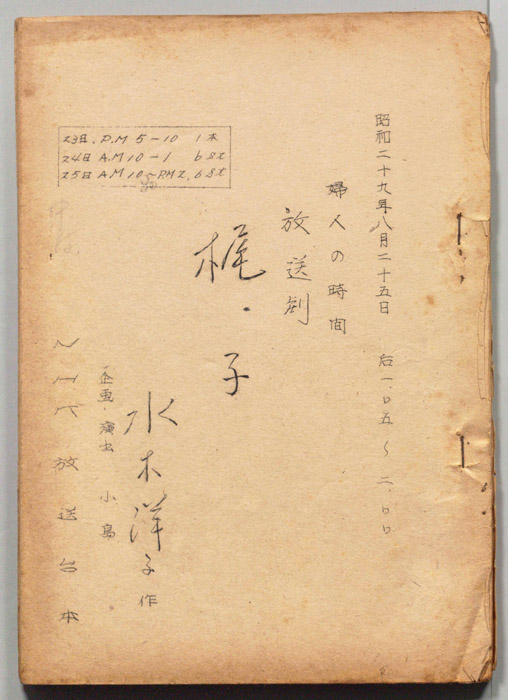 昭和二十九年八月二十五日　后一.〇五～二.〇〇
婦人の時間
放送劇
梶・子
水木洋子作
企画・演出　小島
NHK放送台本
23日.P.M 5－10 1本
24日 A.M 10－1 6St
25日 A.M 10～P.M 2. 6St